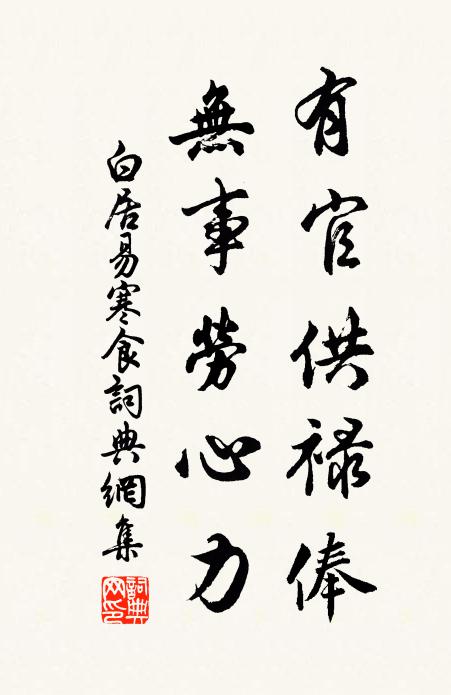 有官供禄俸
無事勞心力
白居易寒食詞典網集
詞典網印